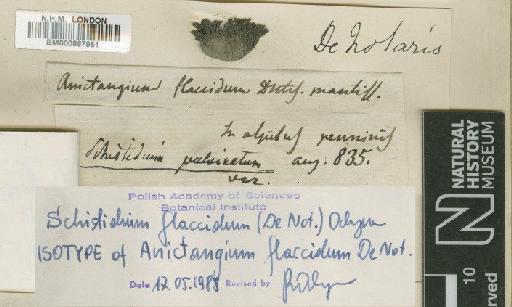 N.H.M. LONDON
BM000867951
De Notaris
Anictangium flaccidum DNtrs. mantiss.
In alpibus penninis
Schistidium pulvinatum aug. 835.
var.
Polish Academy of Sciences
Botanical Institute
Schistidium flaccidum (De Not.) Ochyra
ISOTYPE of Anictangium flaccidum De Not.
Date 17.05.1988 Revised by R. Ochyra
NATURAL
HISTORY
MUSEUM
10
erved